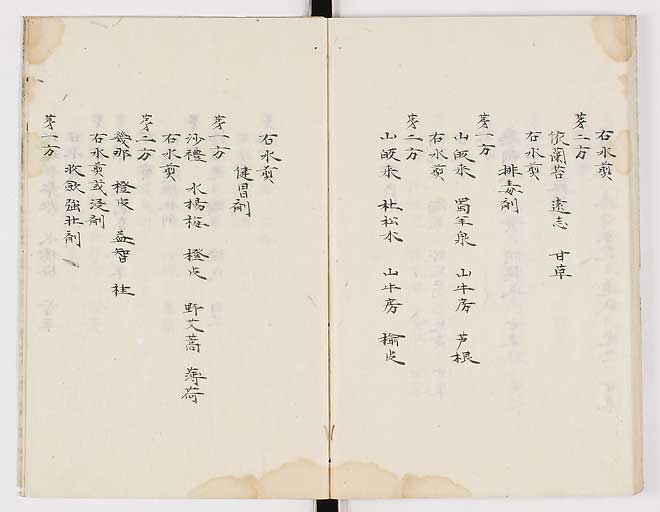 右水煎
第二方
依蘭苔 遠志 甘草
右水煎
排毒剤
第一方
山皈来 蜀羊泉 山牛房 芦根
右水煎
第二方
山皈来 杜松木 山牛房 榆皮
右水煎
健胃剤
第一方
沙禮 水楊梅 橙皮 野艾蒿 薄荷
右水煎
第二方
幾那 橙皮 益智 桂
右水煎或浸剤
收歛強壮剤
第一方